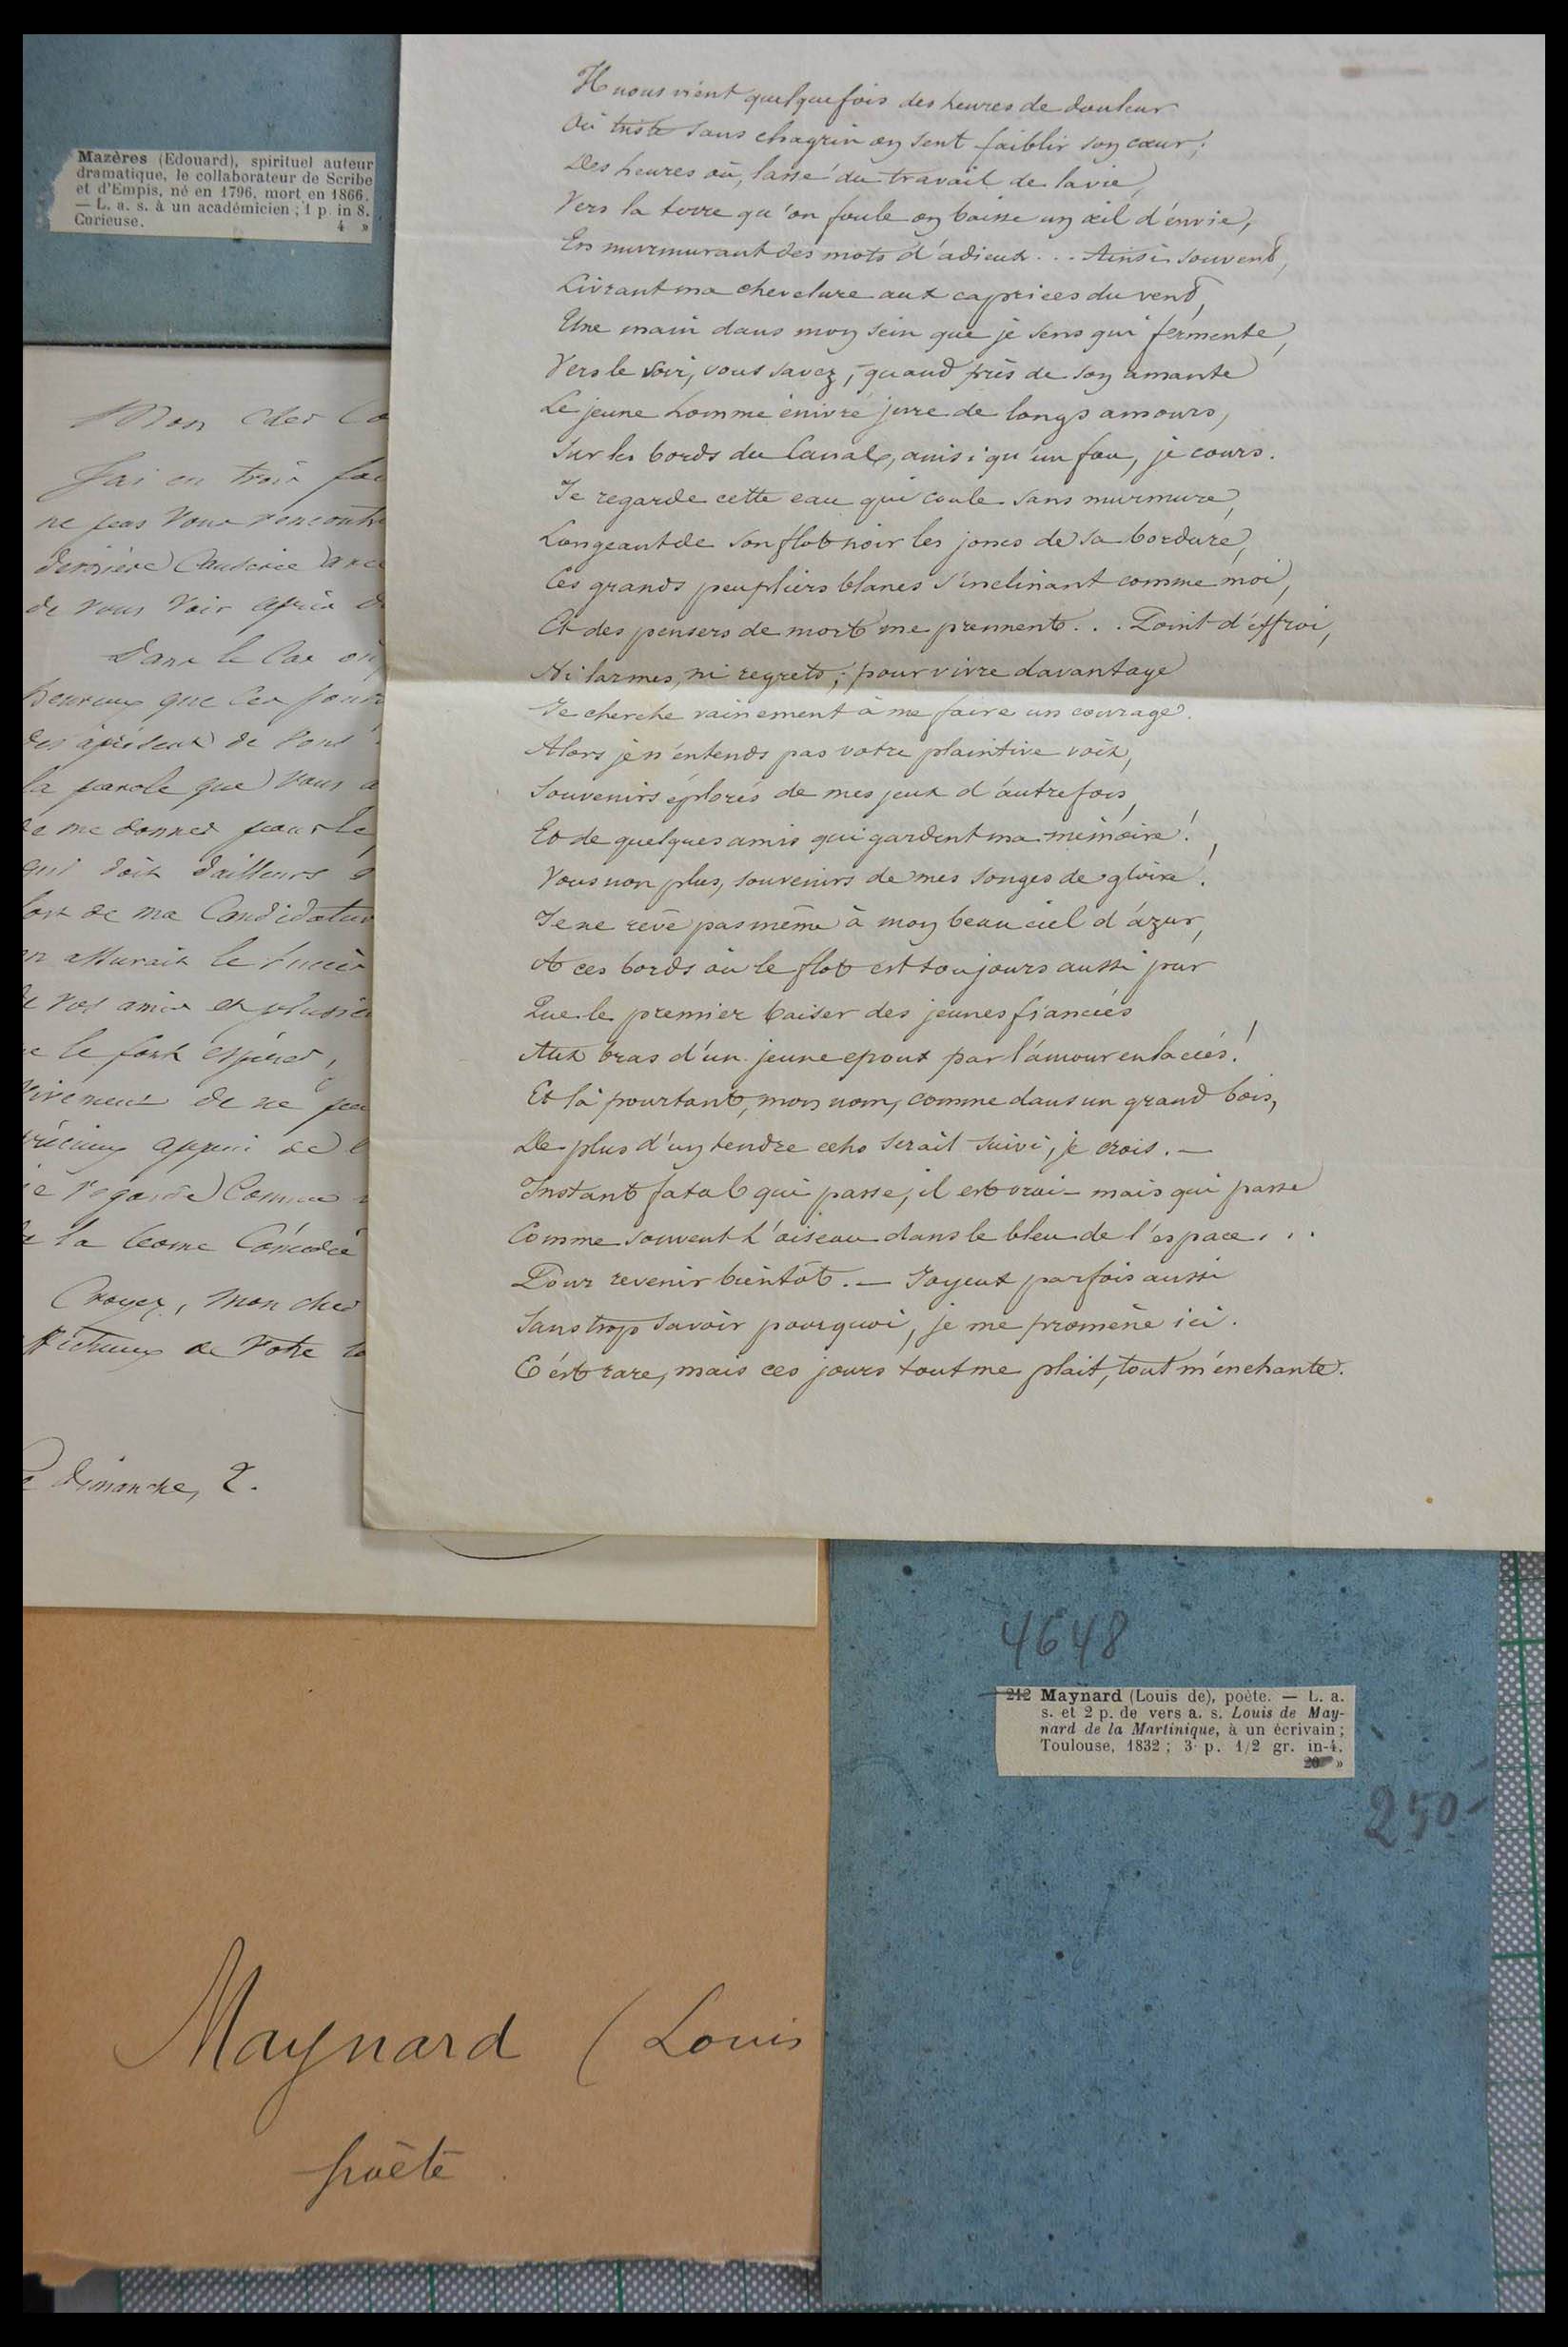 Mazères (Edouard), spirituel auteur
dramatique, le collaborateur de Scribe
et d'Empis, né en 1796, mort en 1866.
— L. a. s. à un académicien ; 1 p. in 8.
Curieuse. 4 »
Il nous vient quelquefois des heures de douleur
Où triste sans chagrin on sent faiblir son cœur ;
Des heures où, lassé du travail de la vie,
Vers la terre qu'on foule on baisse un œil d'envie,
En murmurant des mots d'adieux . . . Ainsi souvent,
Livrant ma chevelure aux caprices du vent,
Une main dans mon sein que je sens qui fermente,
Vers le soir, vous savez, quand près de son amante
Le jeune homme enivré jure de longs amours,
Sur les bords du Canal, ainsi qu'un fou, je cours.
Je regarde cette eau qui coule sans murmure,
Longeant de son flot noir les joncs de sa bordure,
Ces grands peupliers blancs s'inclinant comme moi,
Et des pensers de mort me prennent . . . Point d'effroi,
Ni larmes, ni regrets ; pour vivre davantage
Je cherche vainement à me faire un courage.
Alors je n'entends pas votre plaintive voix,
Souvenirs éplorés de mes jeux d'autrefois,
Et de quelques amis qui gardent ma mémoire !
Vous non plus, souvenirs de mes songes de gloire !
Je ne rêve pas même à mon beau ciel d'azur,
A ces bords où le flot est toujours aussi pur
Que le premier baiser des jeunes fiancés
Aux bras d'un jeune epoux par l'amour enlacés !
Et là pourtant, mon nom, comme dans un grand bois,
De plus d'un tendre echo serait suivi, je crois. —
Instant fatal qui passe, il est vrai — mais qui passe
Comme souvent l'oiseau dans le bleu de l'espace . . .
Pour revenir bientôt. — Joyeux parfois aussi
Sans trop savoir pourquoi, je me promène ici.
C'est rare, mais ces jours tout me plait, tout m'enchante.
Mon cher Co
J'ai eu trois foi
ne pas vous rencontr
dernière Causerie avec
de vous voir après d
Dans le Cas où
heureux que les jour
la parole que vous a
de me donner pour le
qui doit d'ailleurs
sort de ma Candidatur
en assurait le succès
de vos amis et plusie
me le font espérer,
vivement de ne pas
précieux appui de
je regarde Comme
de la bonne Comédie
Croyez, mon cher
de Votre
Dimanche, 2.
4648
212 Maynard (Louis de), poète. — L. a.
s. et 2 p. de vers a. s. Louis de May-
nard de la Martinique, à un écrivain ;
Toulouse, 1832 ; 3 p. 1/2 gr. in-4.
20 »
250-
Maynard (Louis
poète